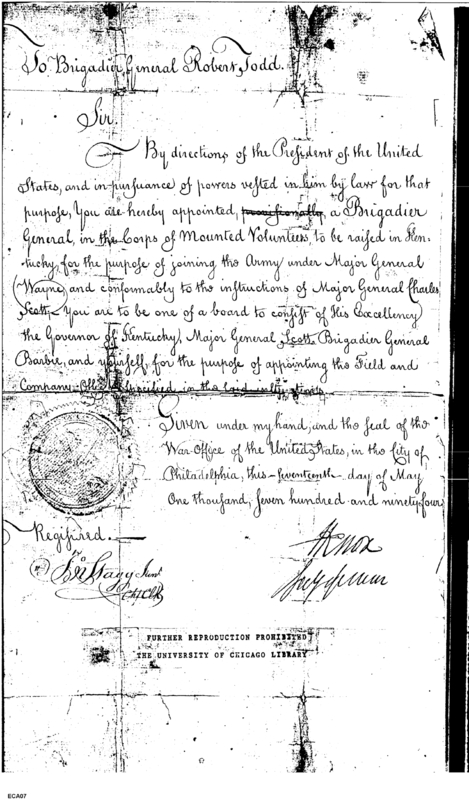 To Brigadier General Robert Todd.
Sir
By directions of the President of the United
States, and in pursuance of powers vested in him by law for that
purpose, You are hereby appointed, provisionally, a Brigadier
General, in the Corps of Mounted Volunteers, to be raised in Ken-
tucky, for the purpose of joining the Army under Major General
Wayne, and conformably to the instructions of Major General Charles
Scott. You are to be one of a board to consist of His Excellency
the Governor of Kentucky, Major General Scott, Brigadier General
Barbie, and yourself, for the purpose of appointing the Field and
Company Officers specified in the said instructions.
Given under my hand, and the seal of the
War-Office of the United States, in the City of
Philadelphia, this seventeenth day of May
One thousand, seven hundred and ninety-four
Registred.
HKnox
Jno Stagg Junr
Ch Clk
FURTHER REPRODUCTION PROHIBITED
THE UNIVERSITY OF CHICAGO LIBRARY
ECA07